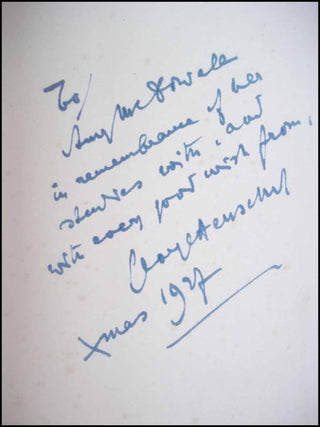 To
Amy McDowall
in remembrance of her
studies with, and
with every good wish from,
George Henschel
Xmas 1927